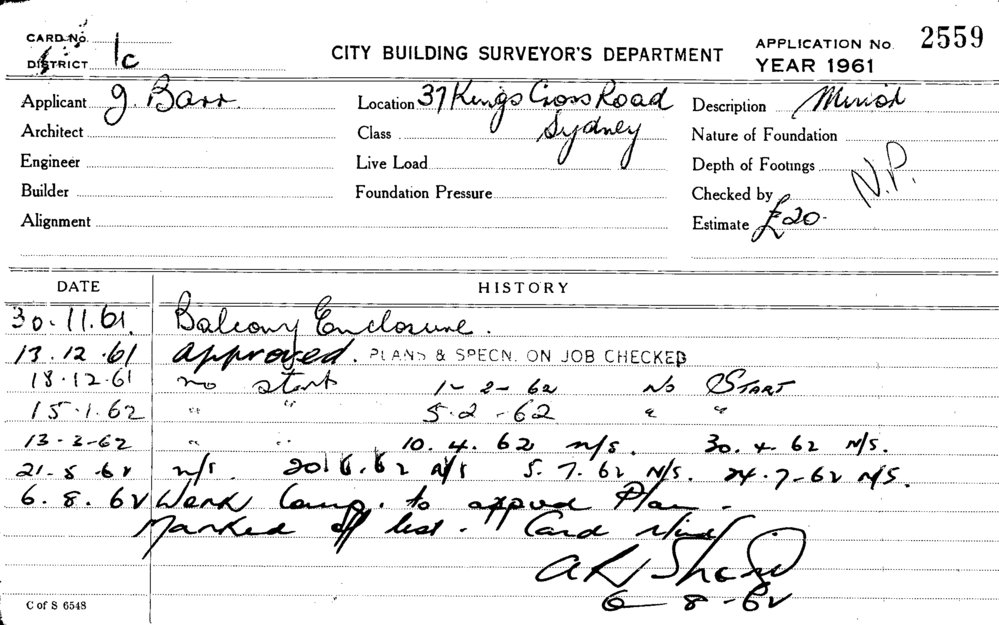 CARD No.
DISTRICT 1c
CITY BUILDING SURVEYOR'S DEPARTMENT
APPLICATION No. 2559
YEAR 1961
Applicant J. Barr. Location 37 Kings Cross Road Description
Architect Class Sydney Nature of Foundation
Engineer Live Load Depth of Footings N.P.
Builder Foundation Pressure Checked by
Alignment Estimate £20-
DATE HISTORY
30.11.61. Balcony Enclosure.
13.12.61 approved. PLANS & SPECN. ON JOB CHECKED
18.12.61 no start 1-2-62 No START
15.1.62 " " 5.2-62 " "
13-3-62 " " 10.4.62 n/s. 30.4.62 N/s.
21.5.62 n/s. 20.6.62 n/s 5.7.62 N/s. 24.7-62 N/s.
6.8.62 Work Comp. to appvd Plan.
Marked off list. Card
6-8-62
C of S 6548